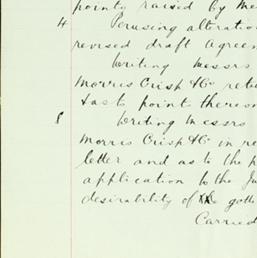 points raised by Me
4 Perusing alteration
revised draft Agreem
Writing Messrs
Morris Crisp & Co retu
& as to points thereon
8 Writing Messrs
Morris Crisp & Co in re
letter and as to the p
application to the Ju
desirability of the gett
Carried